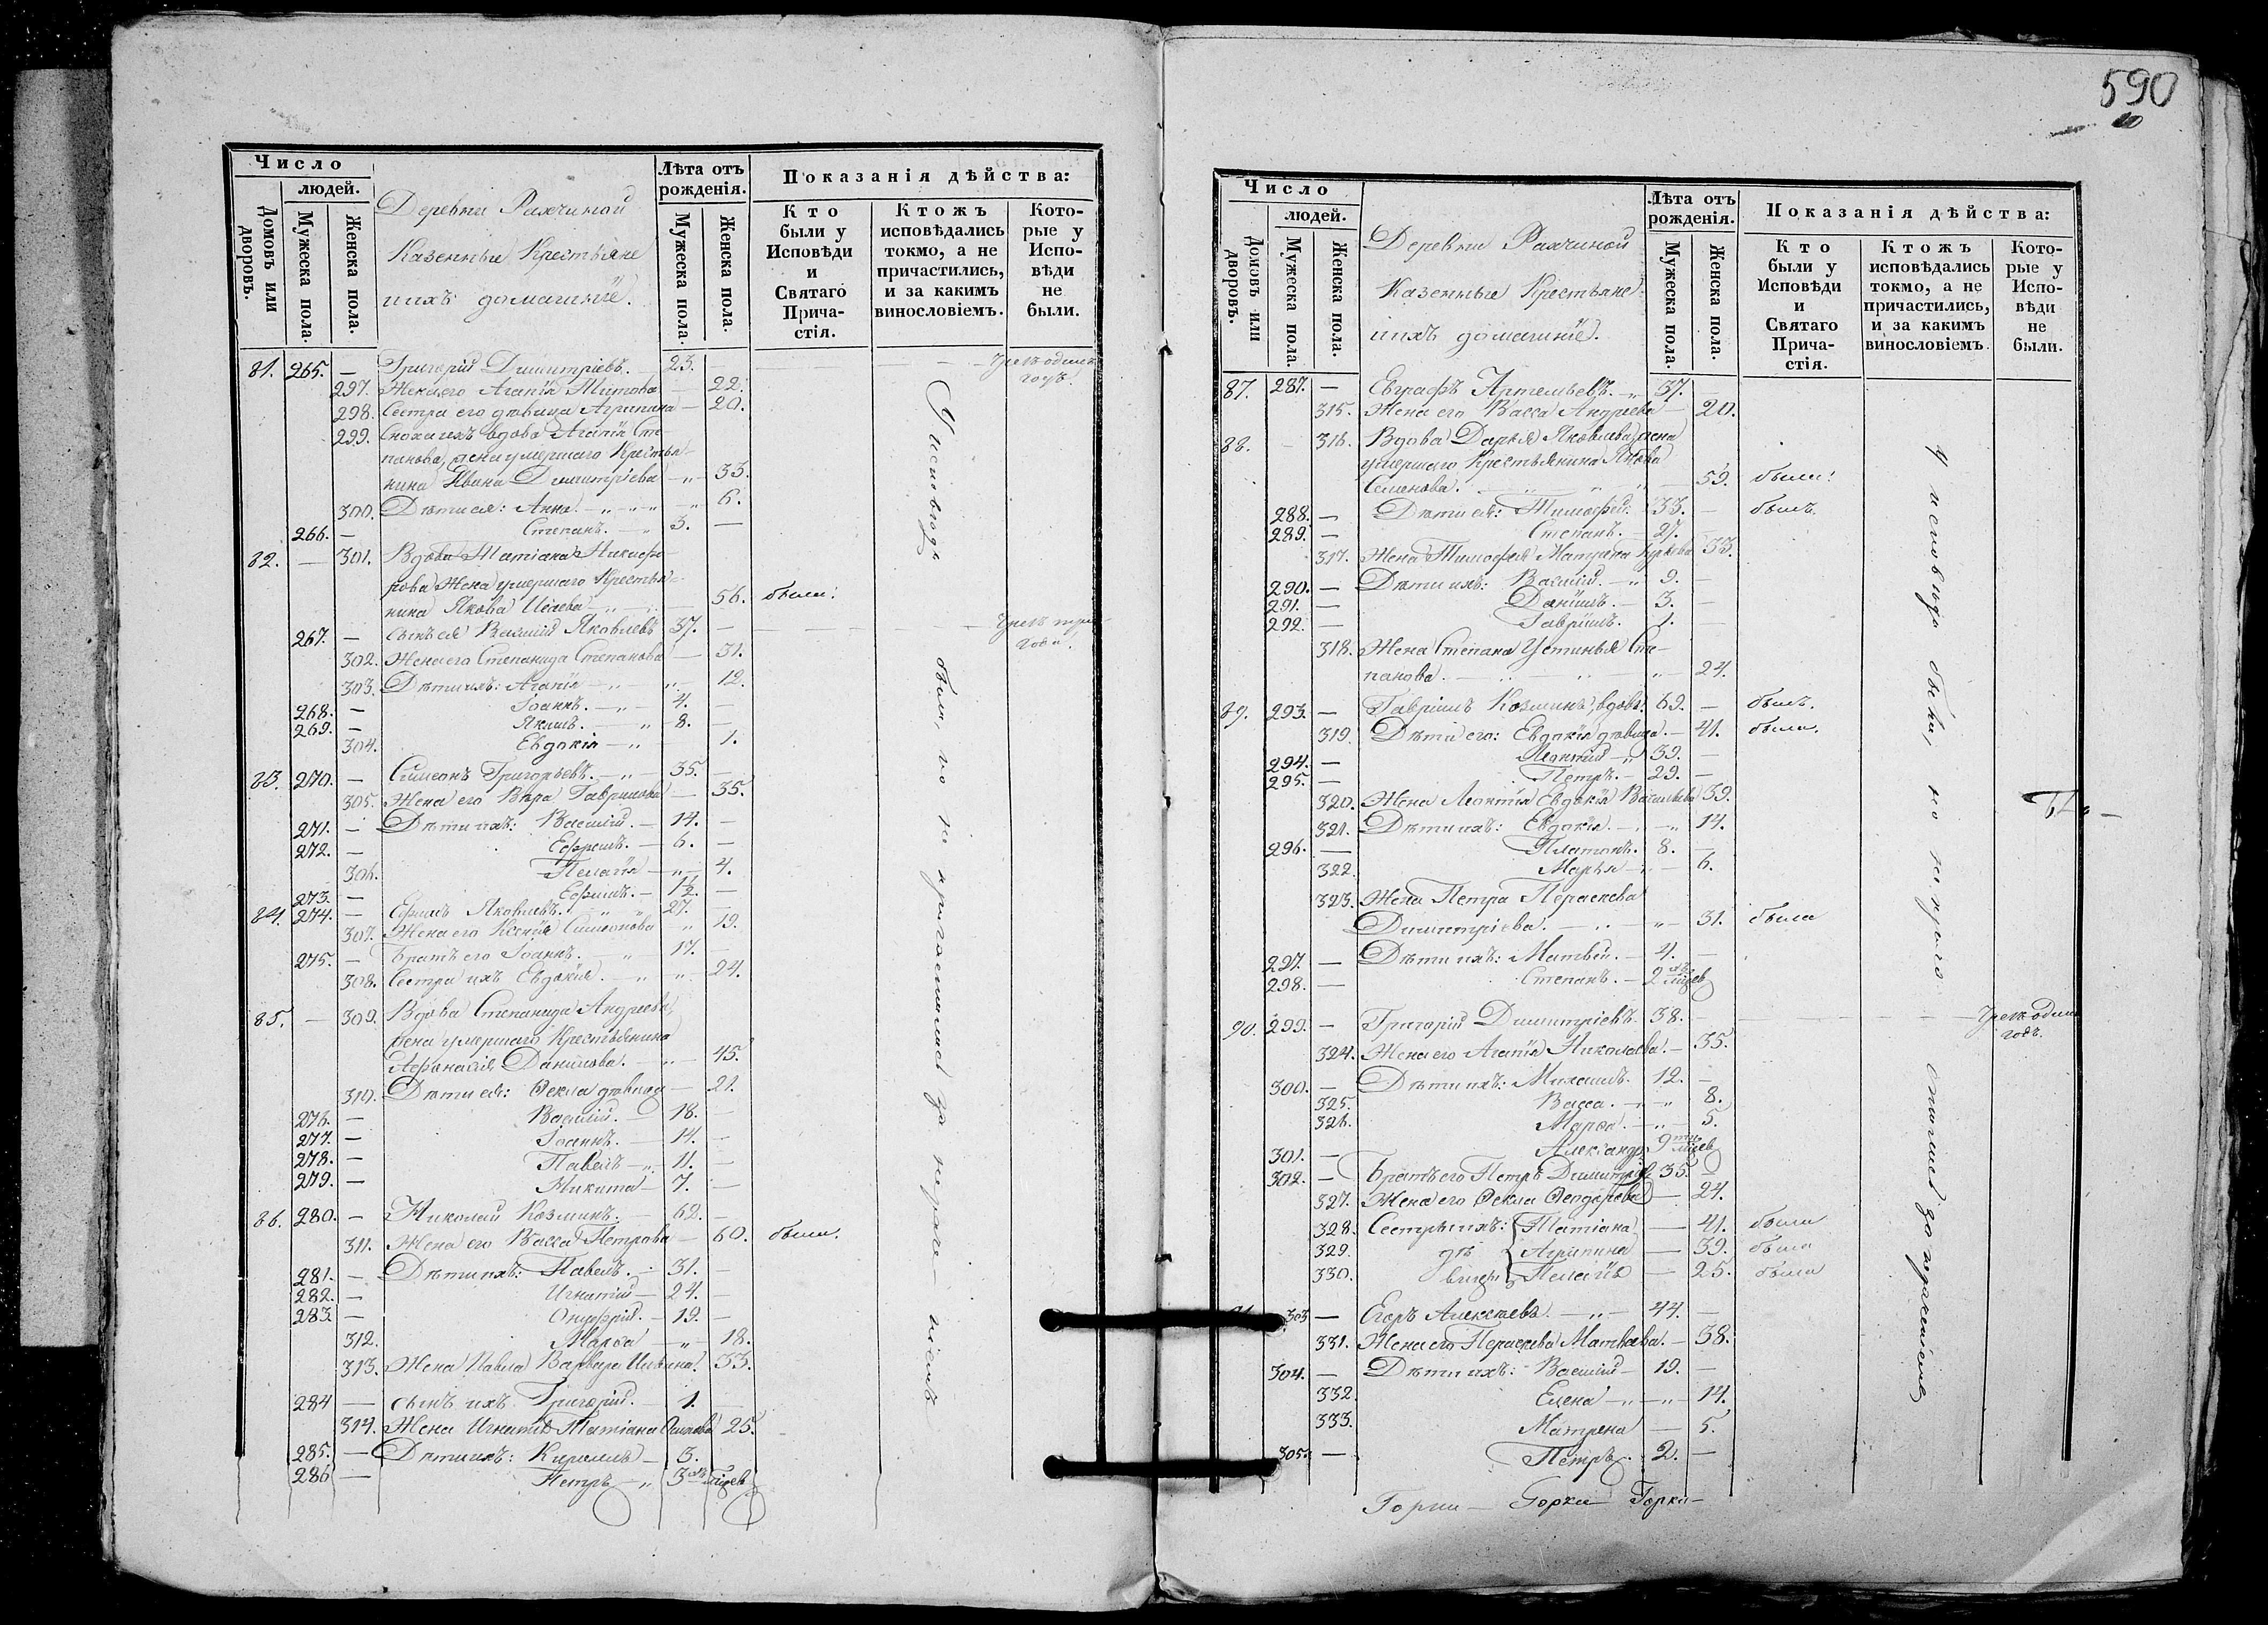 590
Число
людей.
Домовъ или дворовъ.
Мужеска пола.
Женска пола.
Деревни
Казенные Крестьяне
ихъ домашніе.
Лѣта отъ рожденія.
Мужеска пола.
Женска пола.
Показанія дѣйства:
Кто были у Исповѣди и Святаго Прича-стія.
Ктожъ исповѣдались токмо, а не причастились, и за какимъ винословіемъ.
Кото-рые у Испо-вѣди не были.
81. 265. — Григорій Димитріевъ. 23.
297. Жена его Агапія Титова — 22.
298. Сестра его дѣвица Агрипина — 20.
299. Сноха ихъ вдова Агапія Сте-
панова, жена умершаго Крестья-
нина Ивана Димитріева — 33.
300. Дѣти ея: Анна. — 6.
266. — Степанъ. — 3. —
82. — 301. Вдова Татіана Никифо-
рова Жена умершаго Крестья-
нина Якова — 56. была.
267. — сынъ ея Василій Яковлевъ 37. —
302. Жена его Степанида Степанова — 31.
303. Дѣти ихъ: Агапія — 12.
268. — Іоаннъ. — 4. —
269. — Якимъ. — 8. —
304. Евдокія — 1.
83. 270. — Симеонъ Григорьевъ. — 35. —
305. Жена его Вѣра Гаврилова — 35.
271. — Дѣти ихъ: Василій. — 14. —
272. — Ефремъ. — 6. —
306. Пелагія — 4.
273. — Ефимъ. — 1½. —
84. 274. — Ефимъ Яковлевъ. 27. —
307. Жена его Ксенія Симеонова 19.
275. — Братъ его Іоаннъ. — 17. —
308. Сестра ихъ Евдокія. — 24.
85. — 309. Вдова Степанида Андреева,
жена умершаго Крестьянина
Аѳанасія Данилова. — 45.
310. Дѣти ея: Ѳекла дѣвица — 21.
276. — Василій. — 18. —
277. — Іоаннъ. — 14. —
278. — Павелъ — 11. —
279. — Никита — 7. —
86. 280. — Николай Козминъ. — 62. —
311. Жена его Васса Петрова — 60. была.
281. — Дѣти ихъ: Павелъ. — 31. —
282. — Игнатій — 24. —
283 — Онуфрій. — 19. —
312. Марѳа — 18.
313. Жена Павла Варвара 33.
284 — сынъ ихъ Григорій. — 1.
314. Жена Игнатія Татіана 25.
285. — Дѣти ихъ: Кириллъ — 3.
286 — Петръ — 3
У исповѣди были, но не причастились за
Число
людей.
Домовъ или дворовъ.
Мужеска пола.
Женска пола.
Деревни
Казенные Крестьяне
ихъ домашніе.
Лѣта отъ рожденія.
Мужеска пола.
Женска пола.
Показанія дѣйства:
Кто были у Исповѣди и Святаго Прича-стія.
Ктожъ исповѣдались токмо, а не причастились, и за какимъ винословіемъ.
Кото-рые у Испо-вѣди не были.
87. 287. — Евграфъ Артемьевъ. — 37.
315. Жена его Васса Андреева — 20.
88. — 316. Вдова Дарья Яковлева, жена
умершаго Крестьянина Якова
Семенова. — 59. была.
288. — Дѣти ея: Тимофей. 33. — былъ.
289. — Степанъ. — 27. —
317. Жена Тимофея Матрона 33.
290. — Дѣти ихъ: Василій. — 9. —
291. — Даніилъ. — 3. —
292. — Гавріилъ. — 1. —
318. Жена Степана Устинья Сте-
панова. — 24.
89. 293. — Гавріилъ Козминъ, вдовъ. 69. — былъ.
319. Дѣти его: Евдокія дѣвица. — 41. была.
294. — Леонтій — 39. —
295. — Петръ. — 29. —
320. Жена Леонтія Евдокія Васильева 39.
321. Дѣти ихъ: Евдокія. — 14.
296. — Платонъ. 8. —
322. Марья — 6.
323. Жена Петра Пераскева
Димитріева. — 31. была
297. — Дѣти ихъ: Матвей. — 4. —
298. — Степанъ. — 2
90. 299. — Григорій Димитріевъ 38. —
324. Жена его Агапія Николаева. — 35.
300. — Дѣти ихъ: Михаилъ. 12. —
325. Васса. — 8.
326. Марѳа. — 5.
301. — Александръ 9
302. — Братъ его Петръ Димитріев 35. —
327. Жена его Ѳекла Ѳеодорова — 24.
328. Сестры ихъ: Татіана — 41. была
329. дѣ Агрипина — 39. была
330. вицы Пелагія — 25. была
303 — Егоръ Алексѣевъ. — 44. —
331. Жена его Пераскева Матвѣева. — 38.
304. — Дѣти ихъ: Василій — 19. —
332. Елена — 14.
333. Матрена — 5.
305. — Петръ. 2. —
У исповѣди были, но не